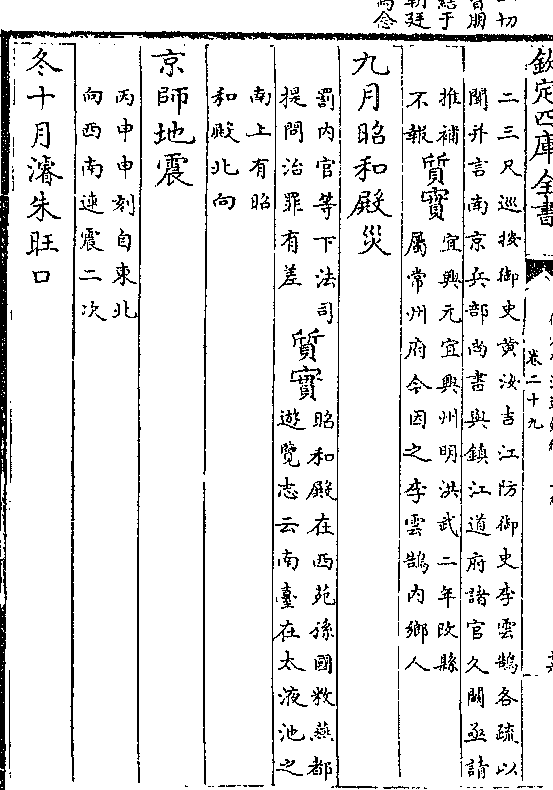 欽定四庫全書
卷二十九
二三尺巡按御史黄汝吉江防御史李雲鵠各疏以
聞并言南京兵部尚書與鎮江道府諸官久闕亟請
推補
不報
質實
宜興元宜興州明洪武二年改縣
屬常州府今因之李雲鵠内鄉人
九月昭和殿災
罰内官等下法司
提問治罪有差
質實
昭和殿在西苑孫國敉燕都
遊覽志云南臺在太液池之
南上有昭
和殿北向
京師地震
丙申申刻自東北
向西南連震二次
冬十月濬朱旺口